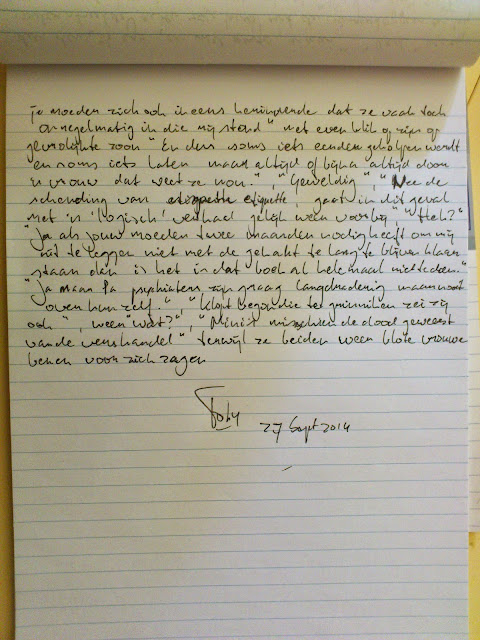 je moeder zich ook ineens herinnerde dat ze vaak toch
onregelmatig in die rij stond" met even blik op zijn op
gevrolijkte zoon" En dus soms iets eerder geholpen werdt
en soms iets later maar altijd of bijna altijd door
'n vrouw dat weet ze nou." , "Geweldig" , "Nee de
schending van etiquette, gaat in dit geval
met 'n 'logisch' verhaal gelijk weer voorbij" "Heh?"
"Ja als jouw moeder twee maanden nodig heeft om mij
uit te leggen niet met de gehakt te lang te blijven klaar
staan dan is het in dat boek al helemaal niet te doen."
"Ja maar Pa psychiaters zijn graag langdradig waarnaast
over hun zelf." , "klopt begon die te grinniken zei zij
ook" , weer "wat?" , "Minst misschien de dood geweest
van de vershandel" terwijl ze beiden weer blote vrouwe
benen voor zich zagen
Toby 27 Sept 2014